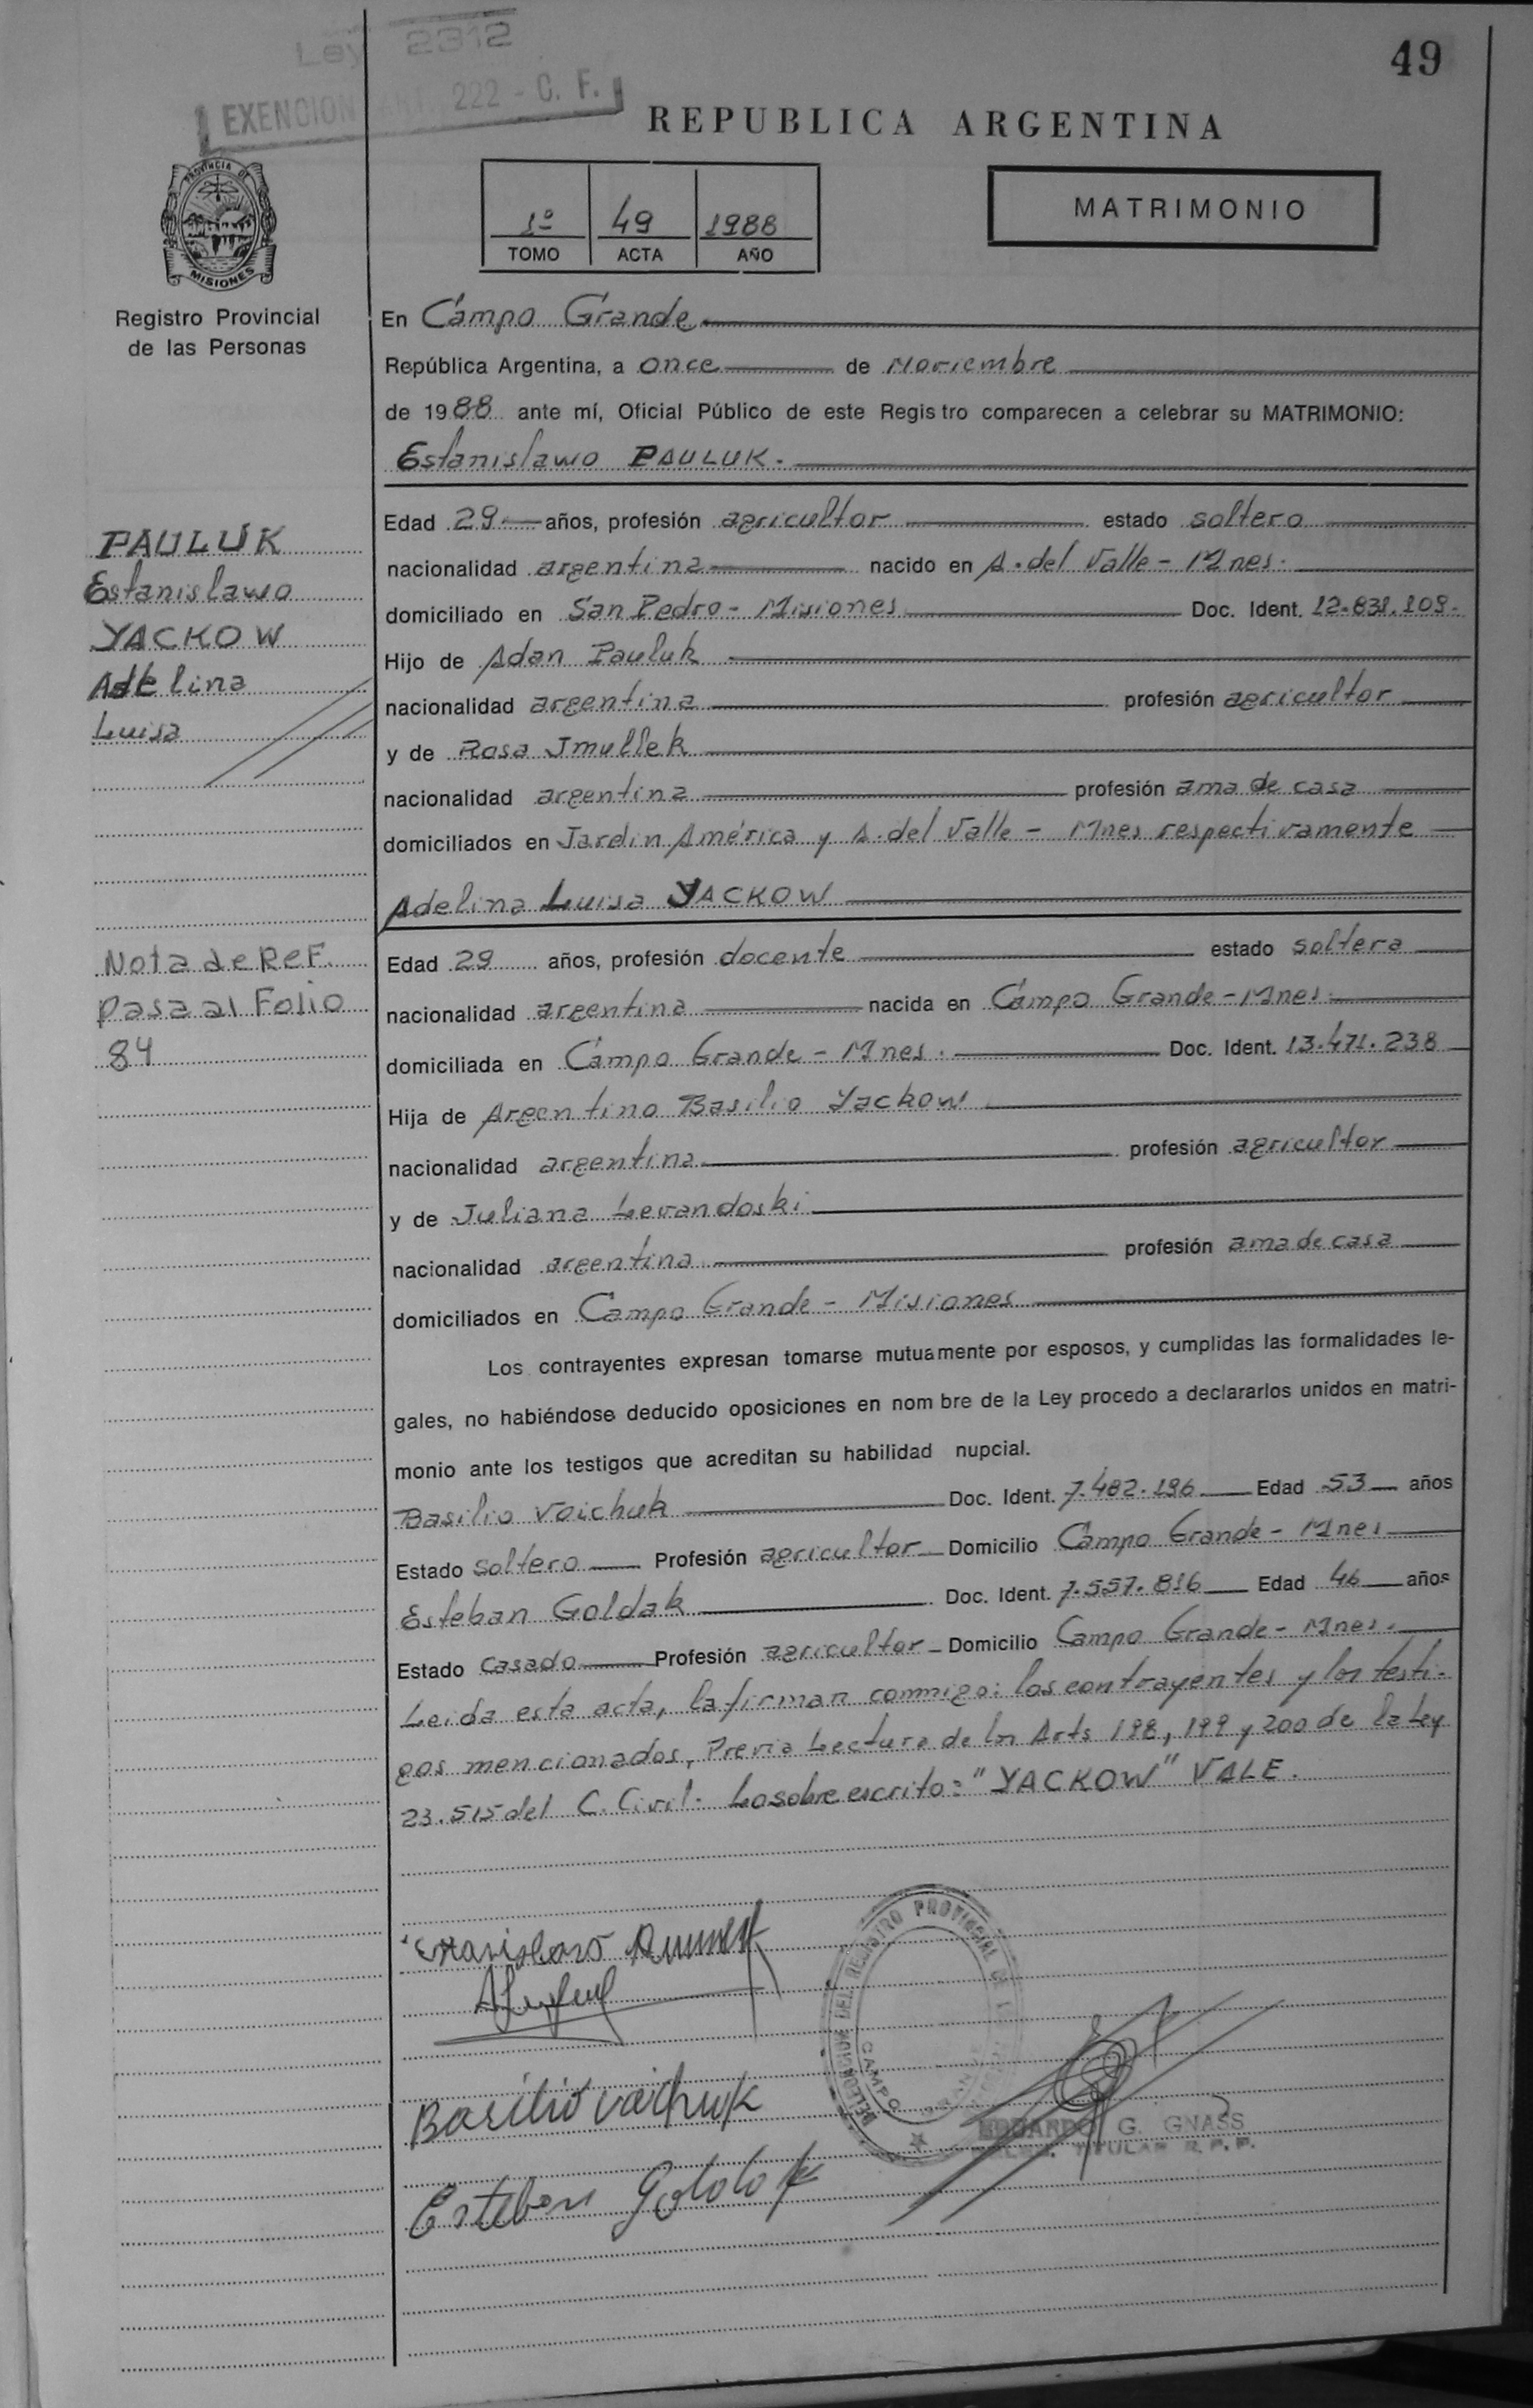 49
Ley 2312
EXENCION ART. 222 - C. F.
REPUBLICA ARGENTINA
PROVINCIA DE
MISIONES
1º 49 1988
TOMO ACTA AÑO
MATRIMONIO
Registro Provincial
de las Personas
En Campo Grande
República Argentina, a once de Noviembre
de 1988 ante mí, Oficial Público de este Registro comparecen a celebrar su MATRIMONIO:
Estanislawo PAULUK.
PAULUK
Estanislawo
YACKOW
Adelina
Luisa
Edad 29 años, profesión agricultor estado soltero
nacionalidad argentina nacido en A. del Valle - Mnes.
domiciliado en San Pedro - Misiones Doc. Ident. 12.831.109.
Hijo de Adan Pauluk
nacionalidad argentina profesión agricultor
y de Rosa
nacionalidad argentina profesión ama de casa
domiciliados en Jardin América y A. del Valle - Mnes respectivamente
Adelina Luisa YACKOW
Nota de Ref.
pasa al Folio
84
Edad 29 años, profesión docente estado soltera
nacionalidad argentina nacida en Campo Grande - Mnes.
domiciliada en Campo Grande - Mnes. Doc. Ident. 13.471.238
Hija de Argentino Basilio Yackow
nacionalidad argentina profesión agricultor
y de Juliana Levandoski
nacionalidad argentina profesión ama de casa
domiciliados en Campo Grande - Misiones
Los contrayentes expresan tomarse mutuamente por esposos, y cumplidas las formalidades le-
gales, no habiéndose deducido oposiciones en nombre de la Ley procedo a declararlos unidos en matri-
monio ante los testigos que acreditan su habilidad nupcial.
Basilio Voichuk Doc. Ident. 7.482.196 Edad 53 años
Estado soltero Profesión agricultor Domicilio Campo Grande - Mnes
Esteban Goldak Doc. Ident. 7.557.816 Edad 46 años
Estado casado Profesión agricultor Domicilio Campo Grande - Mnes.
Leida esta acta, la firman conmigo: los contrayentes y los testi-
gos mencionados, Previa Lectura de los Arts 198, 199 y 200 de la Ley
23.515 del C. Civil. Lo sobre escrito: "YACKOW" VALE.
DELEGACION DEL REGISTRO PROVINCIAL DE
CAMPO GRANDE
Basilio Voichuk
EDUARDO G. GNASS
TITULAR R. P. P.
Esteban Goldak